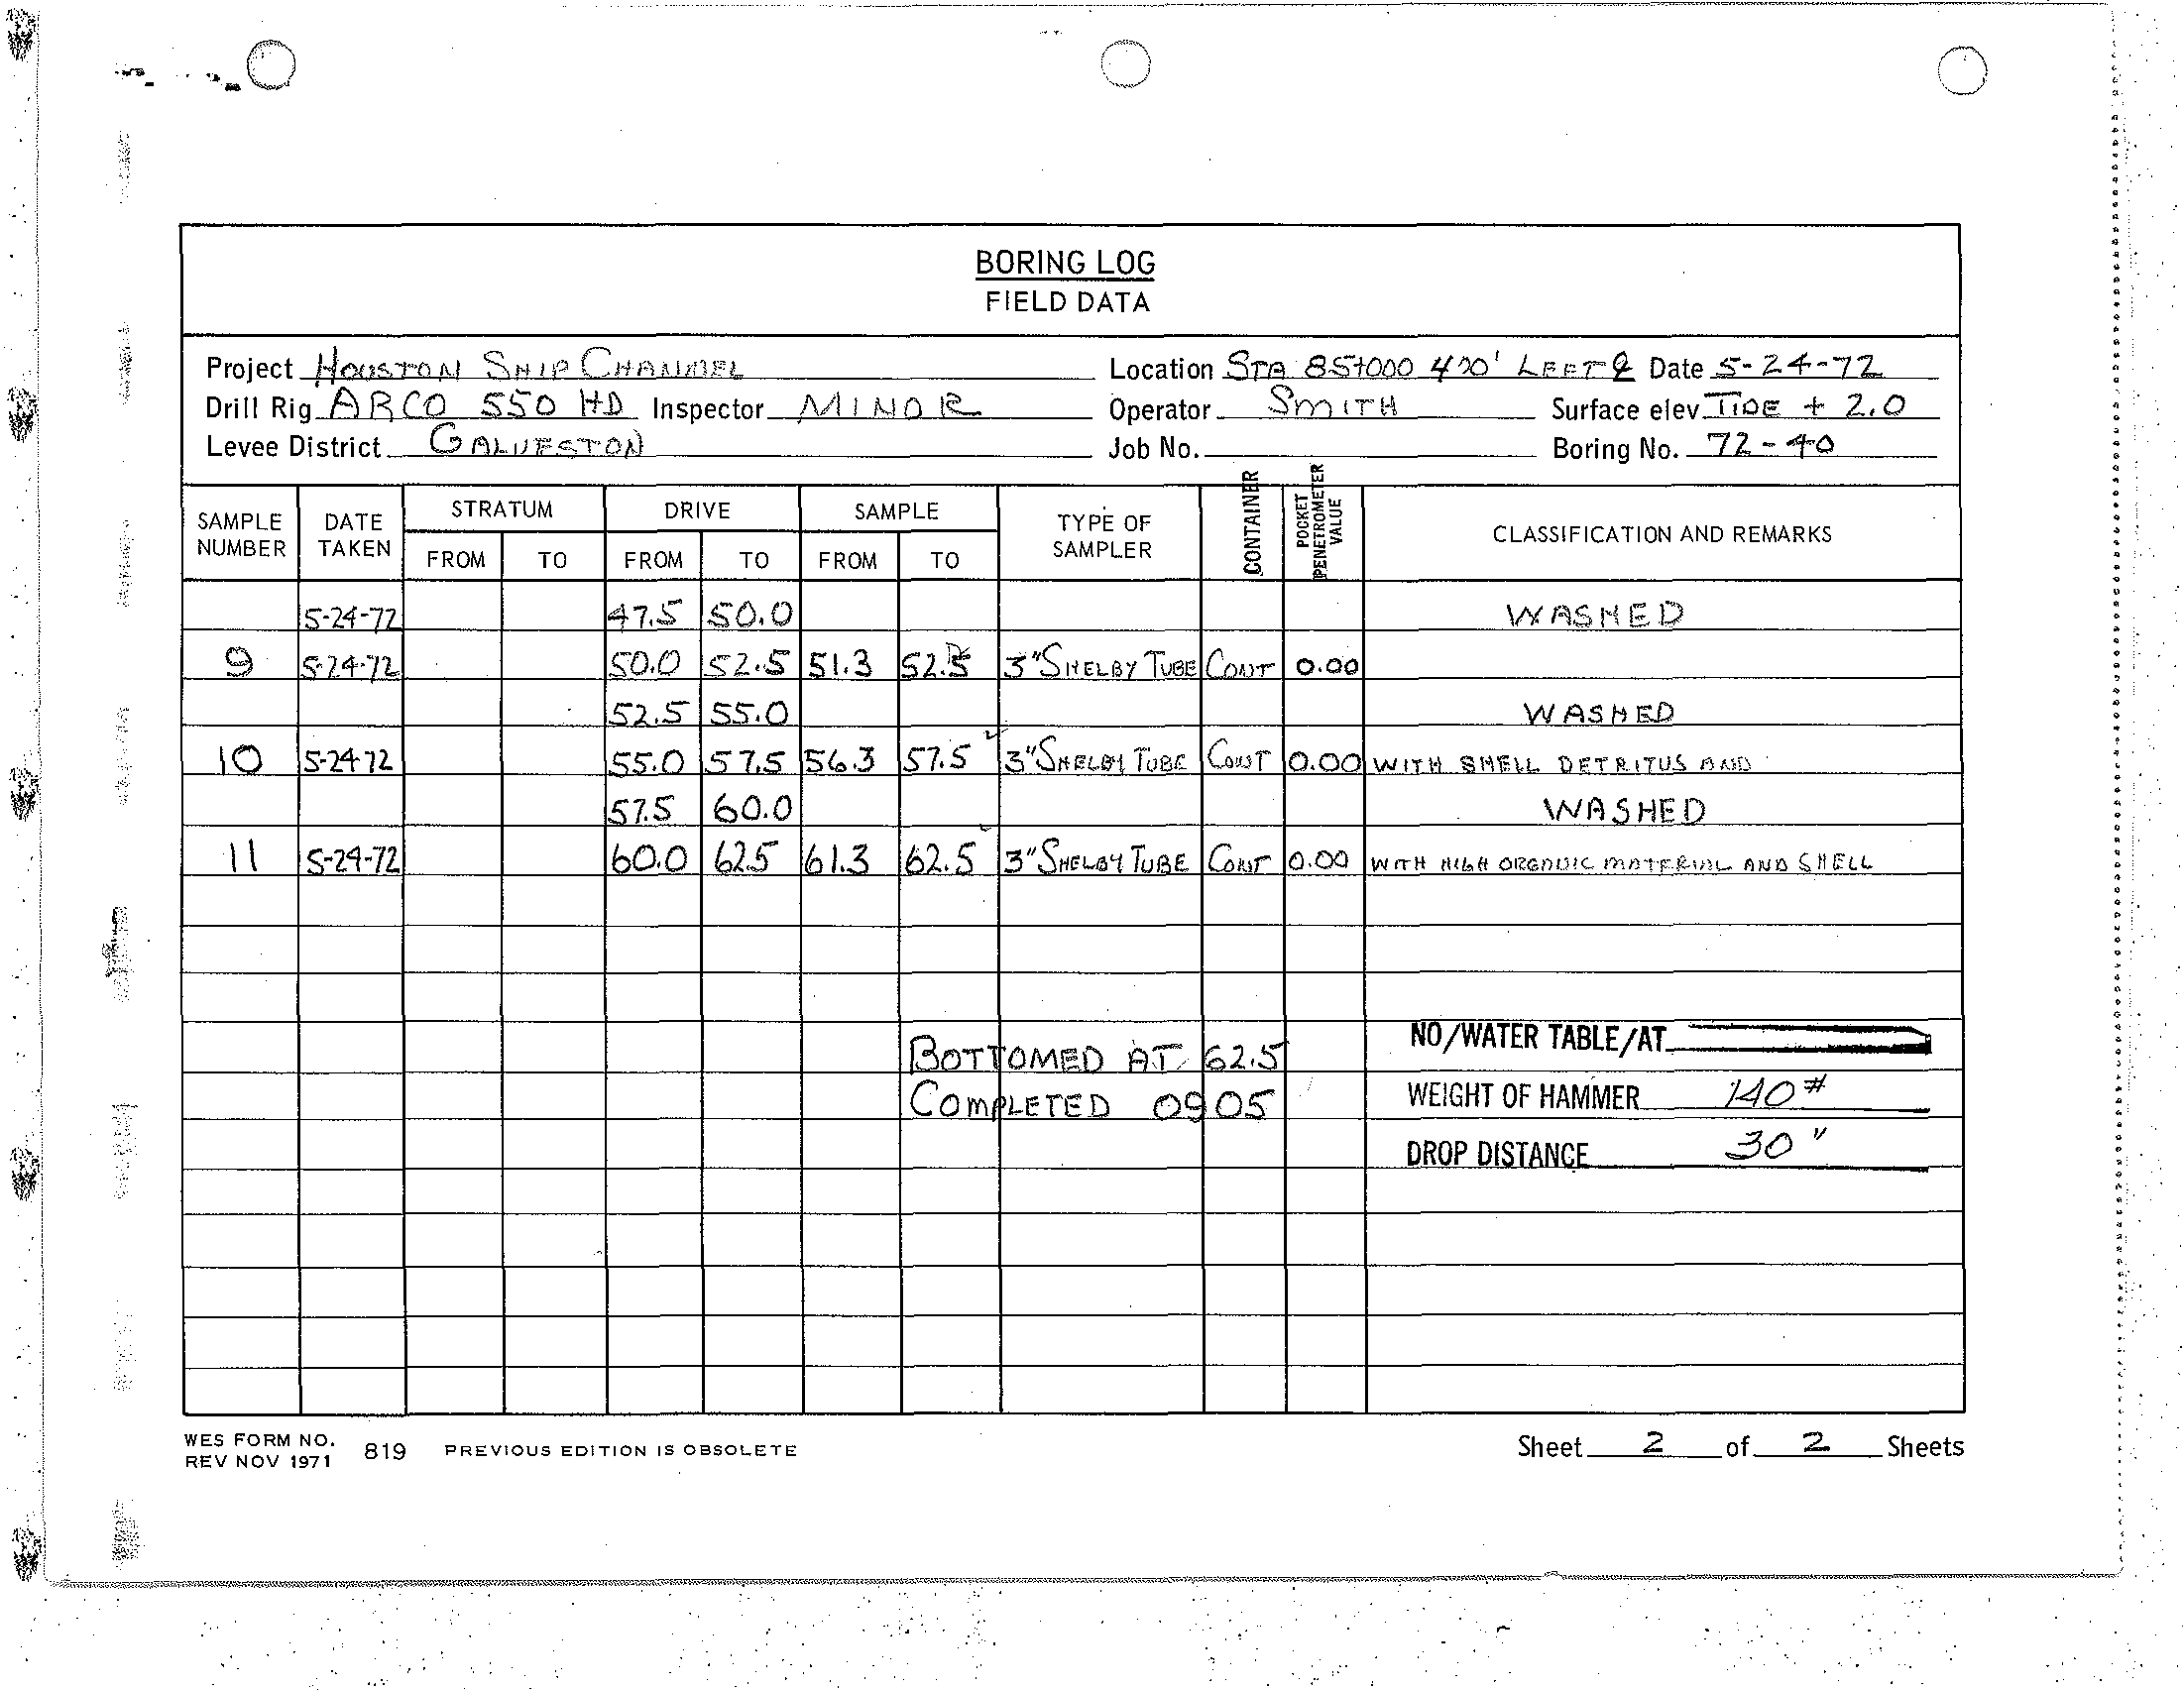 BORING LOG
FIELD DATA
Project HOUSTON SHIP CHANNEL Location STA 85+000 400' LEFT ℄ Date 5-24-72
Drill Rig ARCO 550 HD Inspector MINOR Operator SMITH Surface elev. TIDE + 2.0
Levee District GALVESTON Job No. Boring No. 72-40
SAMPLE NUMBER DATE TAKEN STRATUM FROM TO DRIVE FROM TO SAMPLE FROM TO TYPE OF SAMPLER CONTAINER POCKET PENETROMETER VALUE CLASSIFICATION AND REMARKS
5-24-72 47.5 50.0 WASHED
9 5-24-72 50.0 52.5 51.3 52.5 3" SHELBY TUBE CONT 0.00
52.5 55.0 WASHED
10 5-24-72 55.0 57.5 56.3 57.5 3" SHELBY TUBE CONT 0.00 WITH SHELL DETRITUS AND
57.5 60.0 WASHED
11 5-24-72 60.0 62.5 61.3 62.5 3" SHELBY TUBE CONT 0.00 WITH HIGH ORGANIC MATERIAL AND SHELL
NO/WATER TABLE/AT
BOTTOMED AT 62.5
WEIGHT OF HAMMER 140#
COMPLETED 0905
DROP DISTANCE 30"
WES FORM NO. 819 PREVIOUS EDITION IS OBSOLETE
REV NOV 1971
Sheet 2 of 2 Sheets